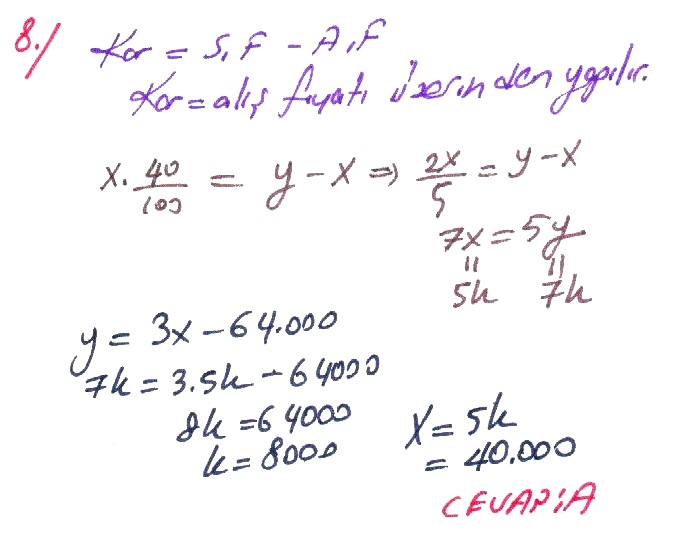 8./ Kar = S.F - A.F
Kar = alış fiyatı üzerinden yapılır.
x. 40/100 = y - x ⇒ 2x/5 = y - x
7x = 5y
= =
5k 7k
y = 3x - 64.000
7k = 3.5k - 64000
8k = 64000
k = 8000
x = 5k
= 40.000
CEVAP: A